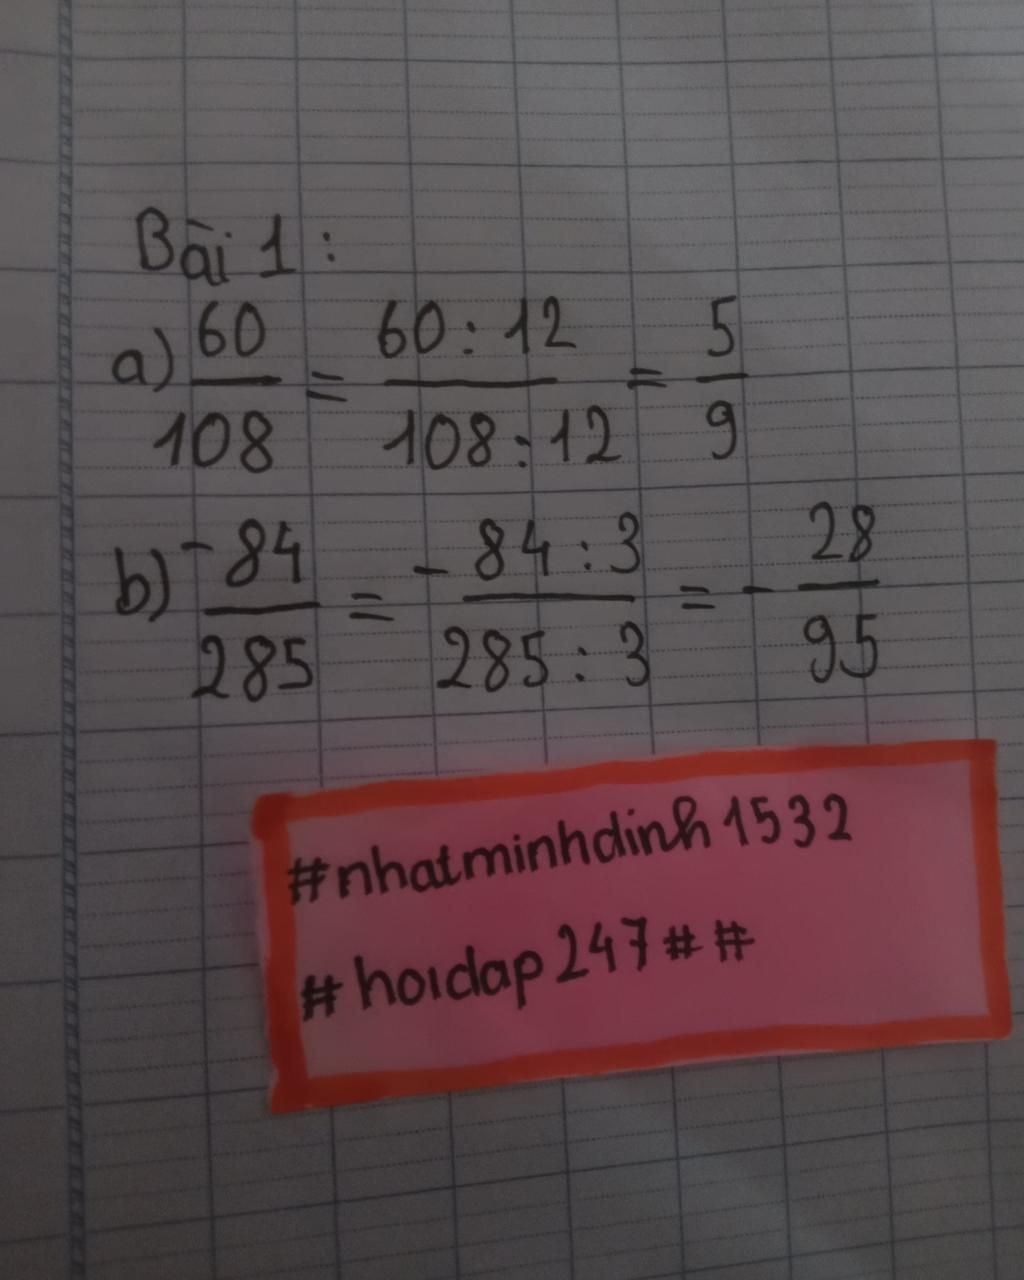 Bài 1 :
a) 60/108 = 60 : 12/108 : 12 = 5/9
b) -84/285 = -84 : 3/285 : 3 = - 28/95
#nhatminhdinh1532
#hoidap247##